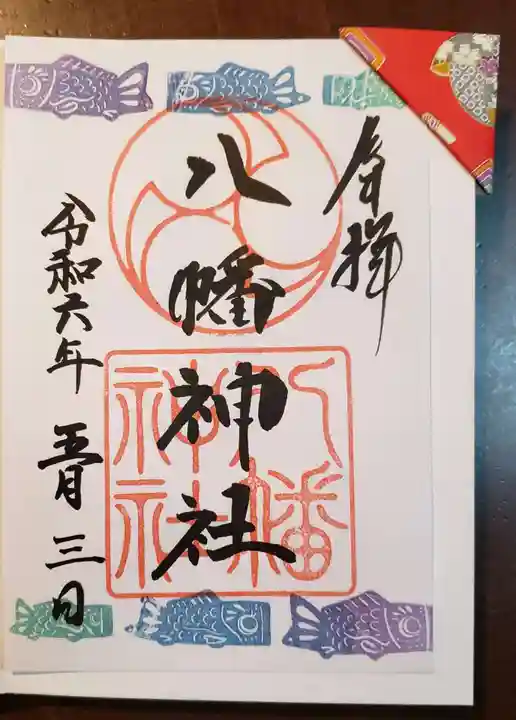 奉拝
八幡神社
八幡
神社
令和六年 五月 三日